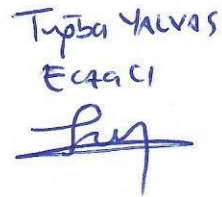 Tuğba YALVAÇ
ECZACI